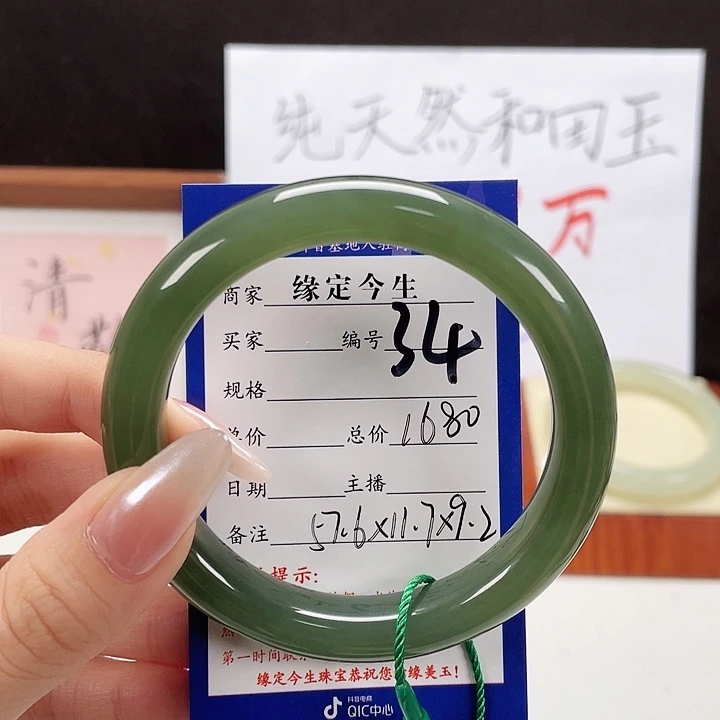 纯天然和田玉
万
清
商家 缘定今生
买家 编号 34
规格
价 总价 1680
日期 主播
备注 57.6×11.7×9.2
提示:
第一时间联
缘定今生珠宝恭祝您 缘美玉!
抖音电商
QIC中心